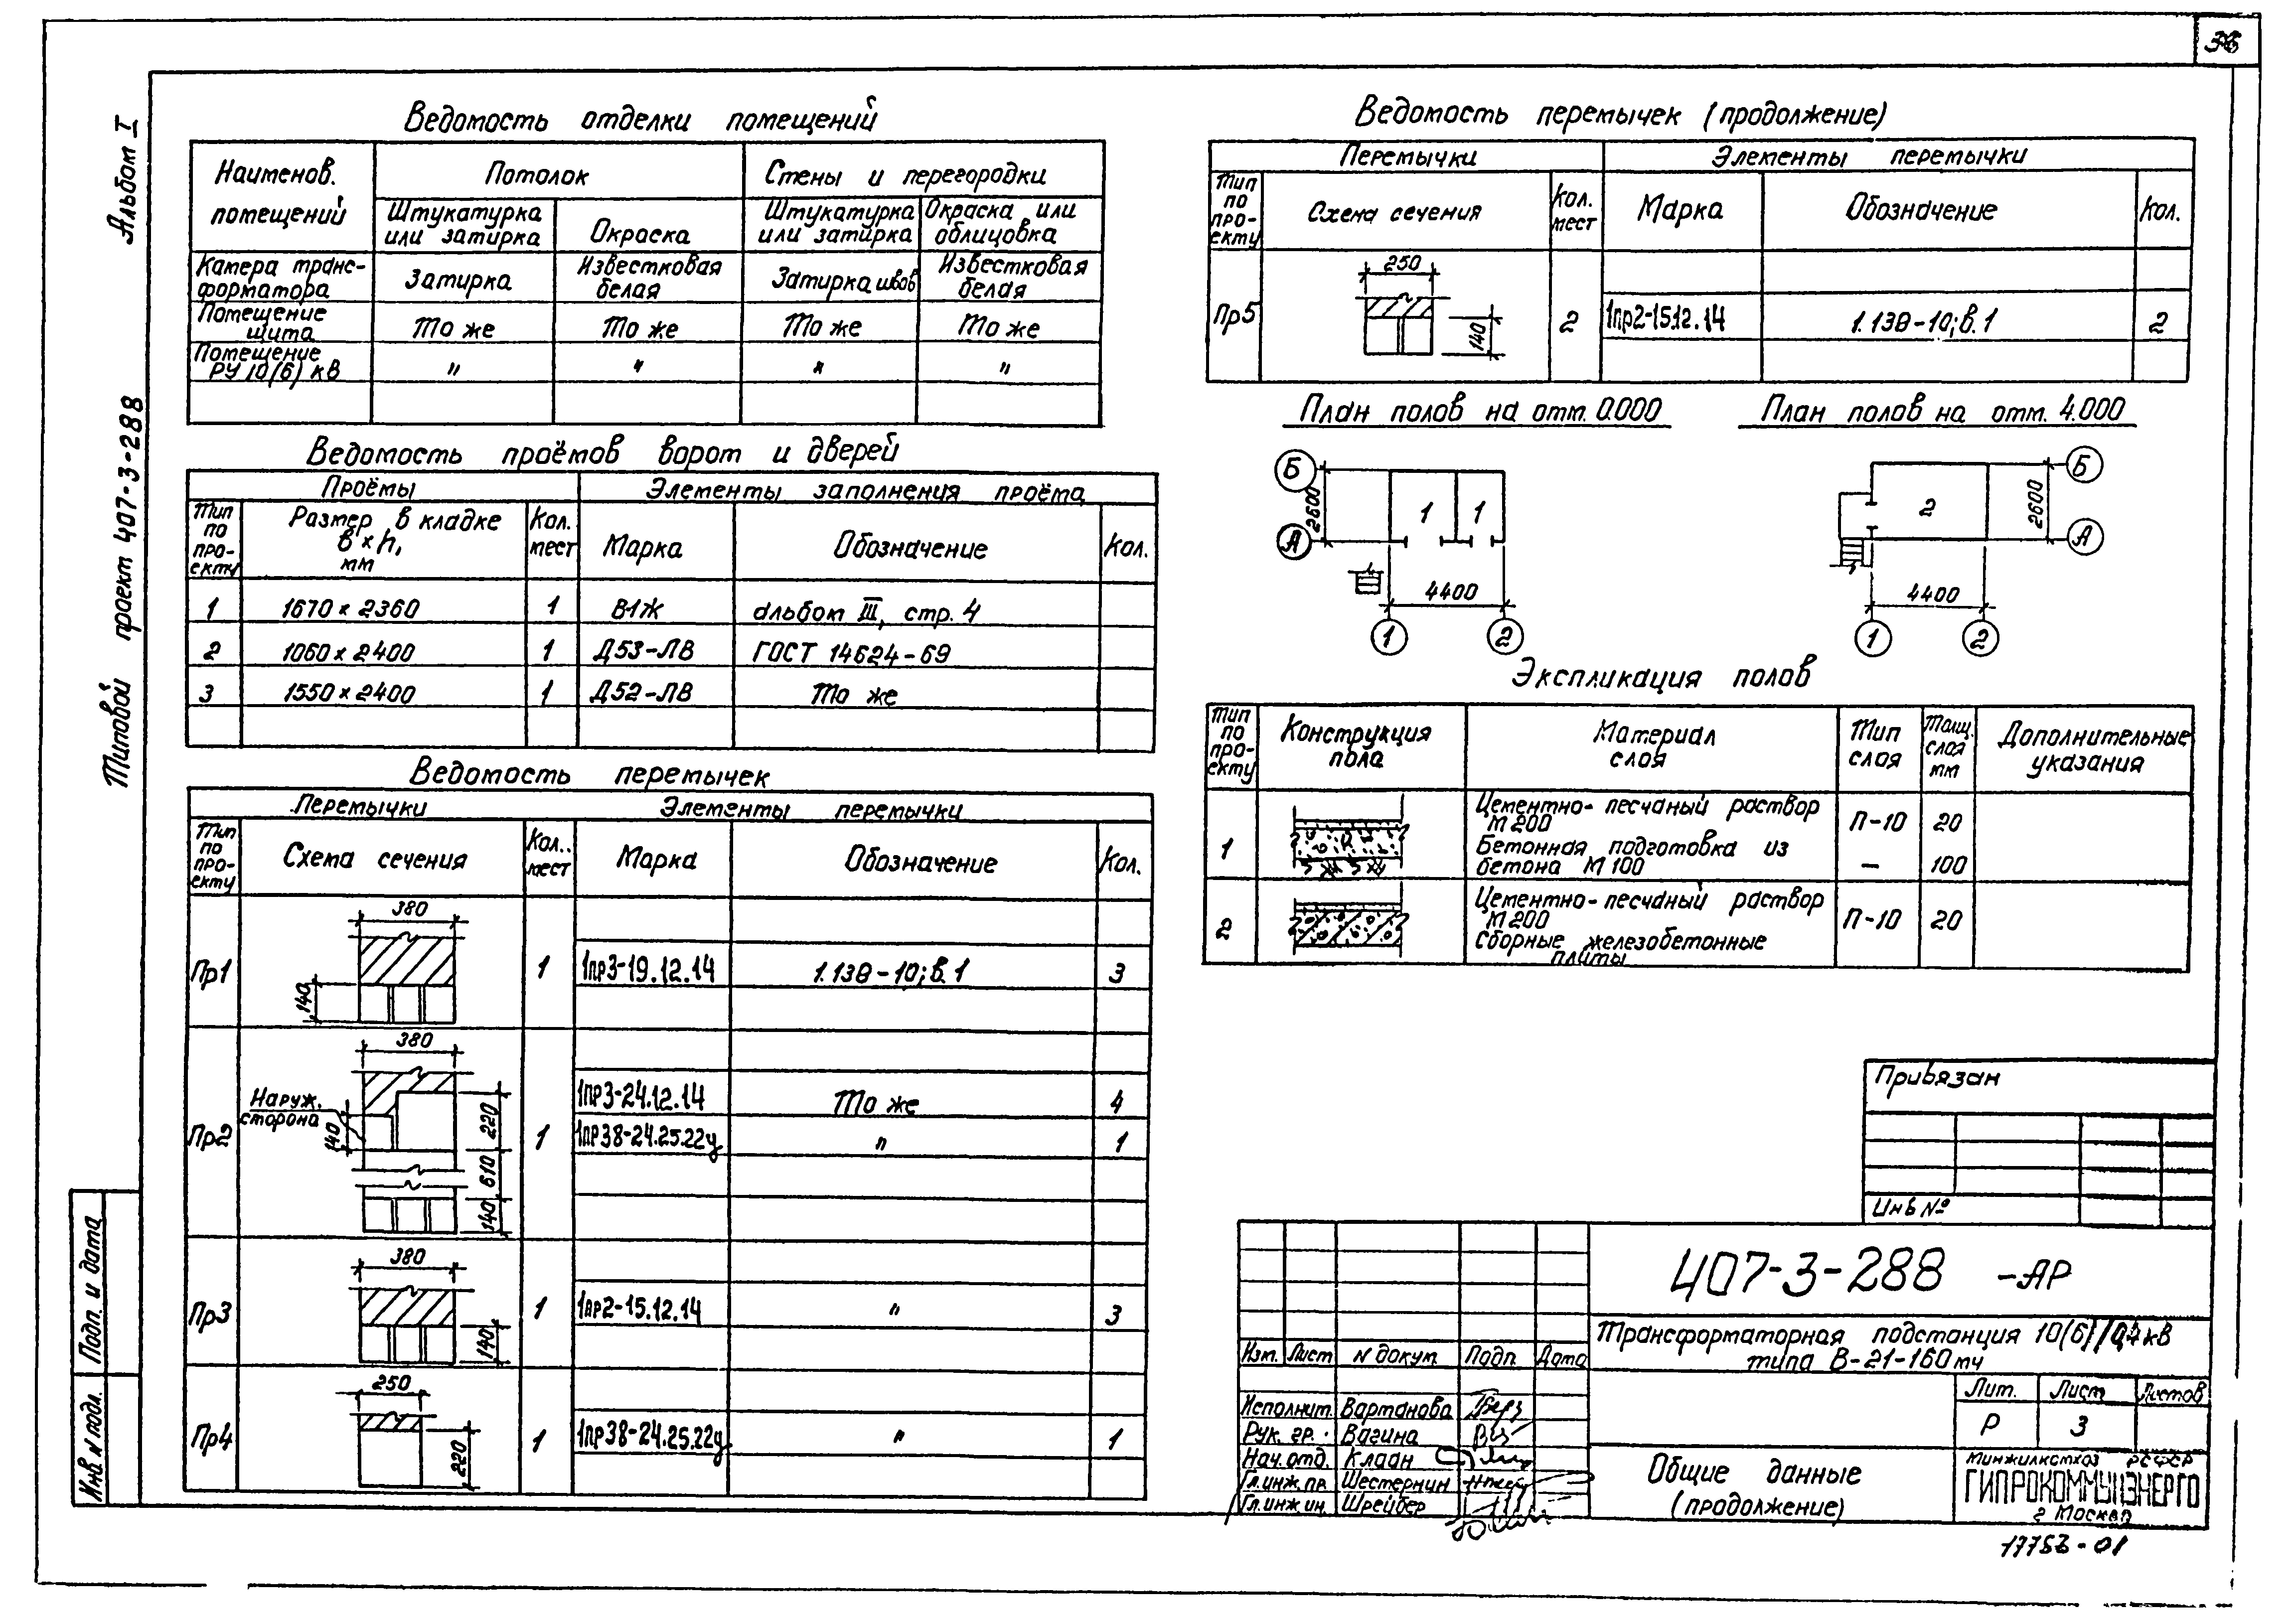 36
Альбом I
Типовой проект 407-3-288
Подп. и дата
Инв. N подл.
Ведомость отделки помещений
Наименов. помещений
Потолок
Стены и перегородки
Штукатурка или затирка
Окраска
Штукатурка или затирка
Окраска или облицовка
Камера трансформатора
Затирка
Известковая белая
Затирка швов
Известковая белая
Помещение щита
То же
То же
То же
То же
Помещение РУ 10(6) кВ
"
"
"
"
Ведомость проёмов ворот и дверей
Проёмы
Элементы заполнения проёма
Тип по проекту
Размер в кладке в×h, мм
Кол. мест
Марка
Обозначение
Кол.
1
1670 × 2360
1
В1Ж
альбом III, стр. 4
2
1060 × 2400
1
Д53-ЛВ
ГОСТ 14624-69
3
1550 × 2400
1
Д52-ЛВ
То же
Ведомость перемычек
Перемычки
Элементы перемычки
Тип по проекту
Схема сечения
Кол. мест
Марка
Обозначение
Кол.
Пр1
380
140
1
1пр3-19.12.14
1.138-10; в.1
3
Пр2
380
Наруж. сторона
140
220
610
140
1
1пр3-24.12.14
То же
4
1пр38-24.25.22у
"
1
Пр3
380
140
1
1пр2-15.12.14
"
3
Пр4
250
220
1
1пр38-24.25.22у
"
1
Ведомость перемычек (продолжение)
Перемычки
Элементы перемычки
Тип по проекту
Схема сечения
Кол. мест
Марка
Обозначение
Кол.
Пр5
250
140
2
1пр2-15.12.14
1.138-10; в.1
2
План полов на отм. 0.000
Б
А
2600
1
1
4400
1
2
План полов на отм. 4.000
2
Б
А
2600
4400
1
2
Экспликация полов
Тип по проекту
Конструкция пола
Материал слоя
Тип слоя
Толщ. слоя мм
Дополнительные указания
1
Цементно-песчаный раствор М200
П-10
20
Бетонная подготовка из бетона М100
—
100
2
Цементно-песчаный раствор М200
П-10
20
Сборные железобетонные плиты
Привязан
Инв №
407-3-288 -АР
Трансформаторная подстанция 10(6)/0,4 кВ
типа В-21-160мч
Изм.
Лист
N докум
Подп
Дата
Исполнит. Вартанова
Рук. гр. Вагина
Нач. отд. Клаан
Гл. инж. пр. Шестернин
Гл. инж. ин. Шрейбер
Лит.
Лист
Листов
Р
3
Общие данные
(продолжение)
Минжилкомхоз РСФСР
ГИПРОКОММУНЭНЕРГО
г Москва
17753-01